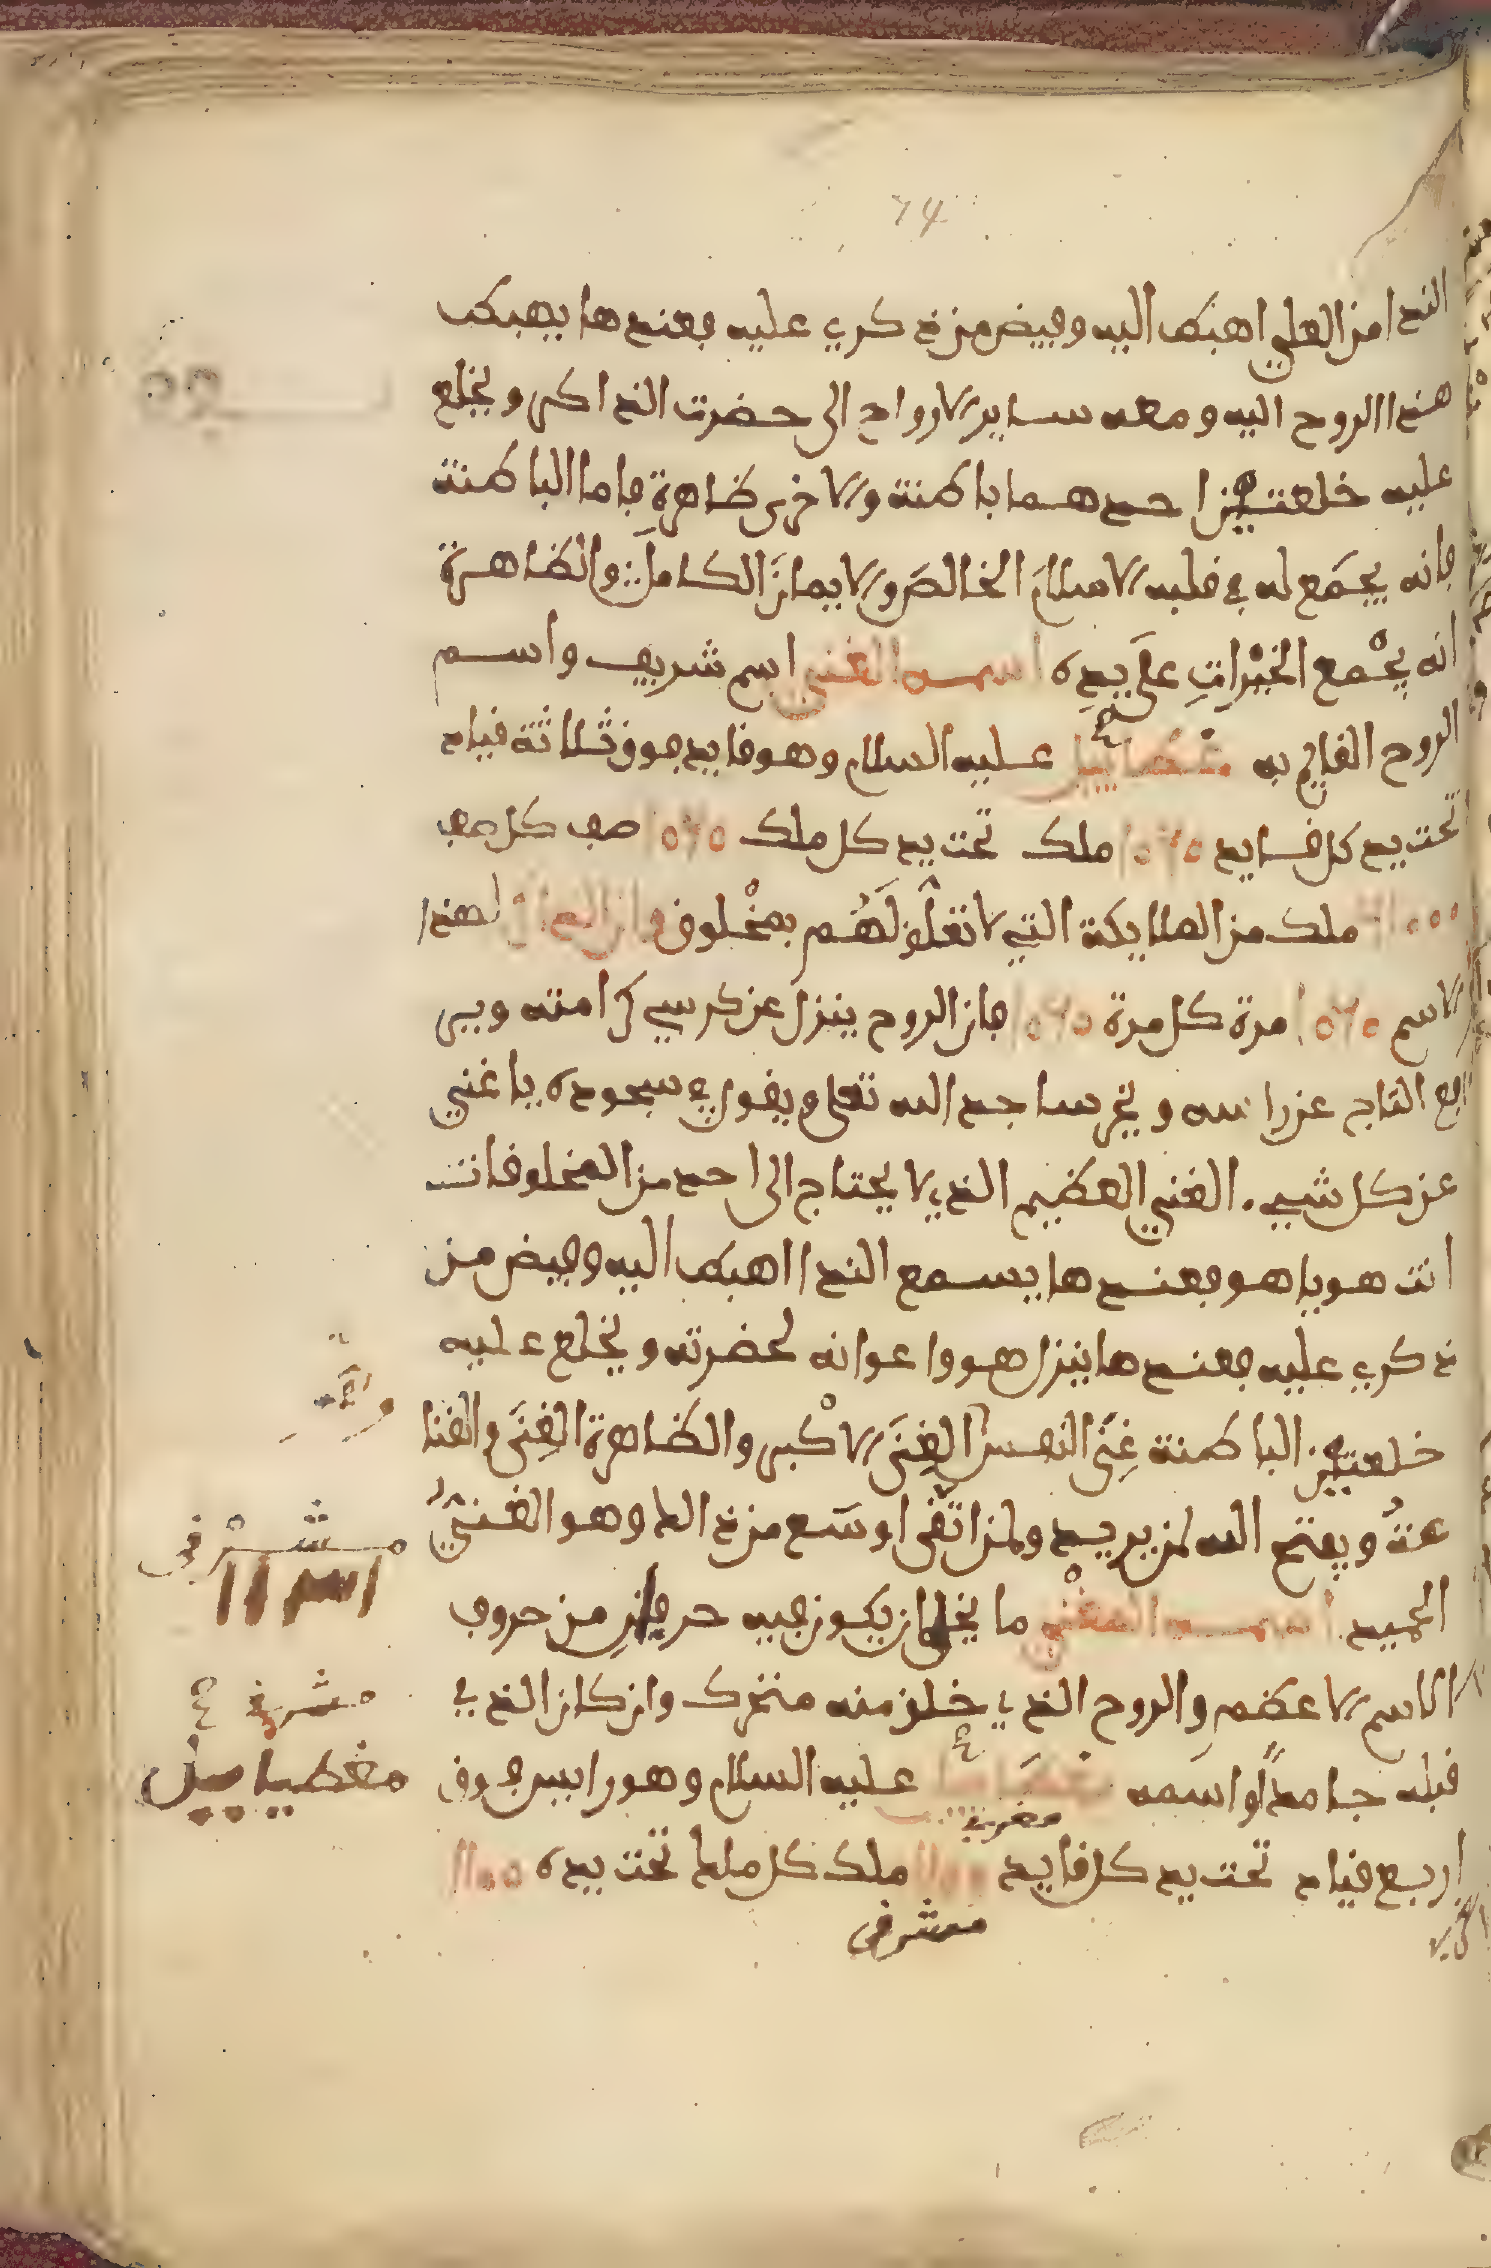 74
الندا من العلي اهبط اليه وفيض من ذكري عليه فعندها يهبط
هذا الروح اليه ومعه ساير الارواح الى حضرت الذاكر ويخلع
عليه خلعتين احدهما باطنة والاخرى ظاهرة فاما الباطنة
فانه يجمَع له في قلبه الاسلامَ الخالصَ والايمانَ الكاملَ والظاهرة
انه يجْمع الخيْراتِ علَى يدِه اسمه الغني اسم شريف واسم
الروح القايم به عليه السلام وهو قايد فوق ثلاثة قياد
تحت يد كل قايد ملك تحت يد كل ملك صف كل صف
ملك من الملايكة التي لا تعلق لَهُم بمخْلوق لهذا
الاسم مرة كل مرة فان الروح ينزل عن كرسي كرامته وير
فع التاج عن راسه ويخر ساجد الله تعلى ويقول في سجوده يا غني
عن كل شيء. الغني العظيم الذي لا يحتاج الى احد من المخلوقات
انت هو يا هو فعندها يسمع الندا اهبط اليه وفيض من
ذكري عليه فعندها ينزل هو واعوانه لحضرته ويخلع عليه
خلعتين الباطنة غِنَى النفس الغِنَى الاكْبر والظاهرة الغِنَى والقنا
عنهُ ويفتح الله لمن يريد ولمن اتقى اوسَع من ذالك وهو الغنيُّ
الحميد اسمه المغْني ما يخلى ان يكون فيه حرفان من حروف
الاسم الاعظم والروح الذي خلق منه متحرك وان كان الذي
قبله جامداً واسَمه عليه السلام وهو راييس فوق
مغربي
اربع قياد تحت يد كل قايد 1100 ملك كل ملك تحت يده 1100
مشرقي
مشْرقي
اسم
مشرقي
مغطياييل